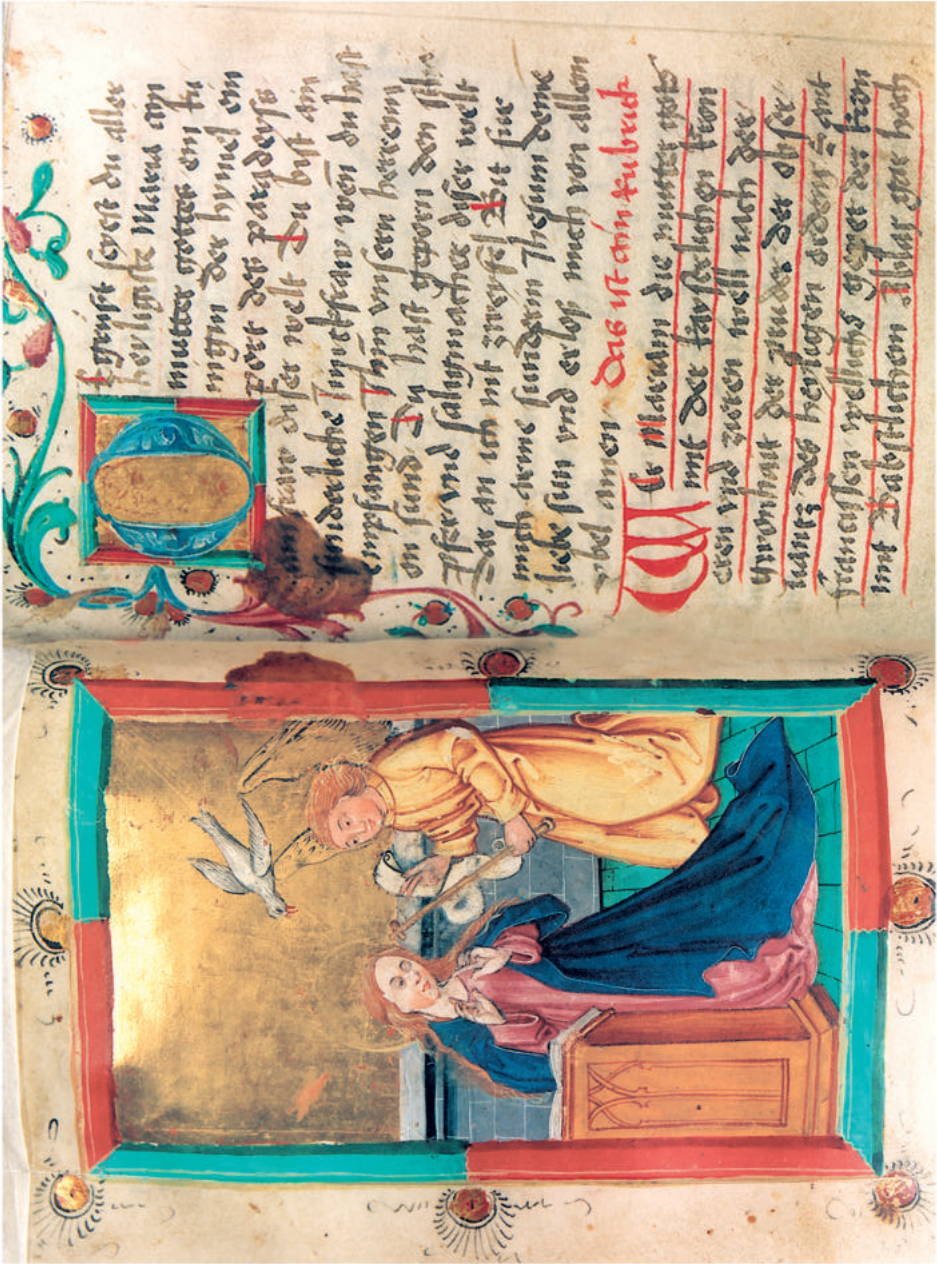 Egruist seyest du aller
heyligiste Maria ain
muetter gottes ein kü
nigin der hymel ein
port des paradeyss
fraw diser welt Du bist ain
sunderliche Junckfraw wen du hast
empfangen Jhüm unsern herrenn
on sund Du hast geporn den sch
öpfer vnd saligmacher diser welt
Dar an ich nit zweyfel Bit fur
mich arme sunderin Jhesum deine
liebe sun vnd erlos mich von allen
ubel amen Das ist ain Rubrick
mariam die mutter gots
mit der kayserlichen kron
eren vnd zieren well nach der
der prueder der obser
uantz des heyligen ordens sant
francissen wellichs gepet der kron
mit Babstlichem Ablas gar hoch